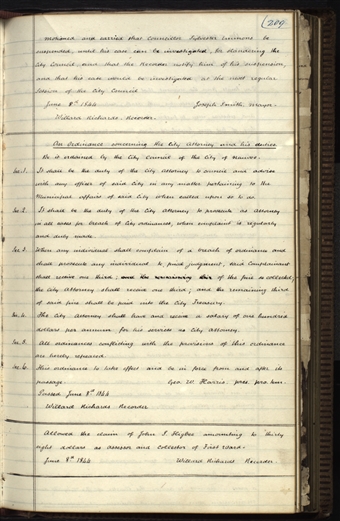 209.
motioned and carried that Councillor Sylvester Emmons be
suspended, until his case can be investigated, for slandering the
City Council; and that the Recorder notify him of his suspension,
and that his case would be investigated at the next regular
Session of the City Council
June 8th 1844 Joseph Smith, Mayor.
Willard Richards. Recorder.
An Ordinance concerning the City Attorney and his duties
Be it ordained by the City Council of the City of Nauvoo.
Sec. 1. It shall be the duty of the City Attorney to council and advise
with any officer of said City in any matter pertaining to the
Municipal affairs of said City when called upon so to do
Sec. 2. It shall be the duty of the City Attorney to prosecute as Attorney
in all cases for breach of City ordinances, when complaint is regularly
and duly made.
Sec. 3. When any individual shall complain of a breach of ordinance and
shall prosecute any individual to final judgment, said Complainant
shall receive one third and the remaining of the fine so collected,
the City Attorney shall receive one third; and the remaining third
of said fine shall be paid into the City Treasury.
Sec. 4. The City Attorney shall have and receive a salary of one hundred
dollars per annum for his services as City Attorney.
Sec. 5. All ordinances conflicting with the provisions of this ordinance
are hereby repealed
Sec. 6. This ordinance to take effect and be in force from and after its
passage. Geo. W. Harris. pres. pro. tem.
Passed June 8th 1844
Willard Richards Recorder
Allowed the claim of John S. Higbee amounting to thirty
eight dollars as assessor and collector of First Ward.
June 8th 1844 Willard Richards Recorder.